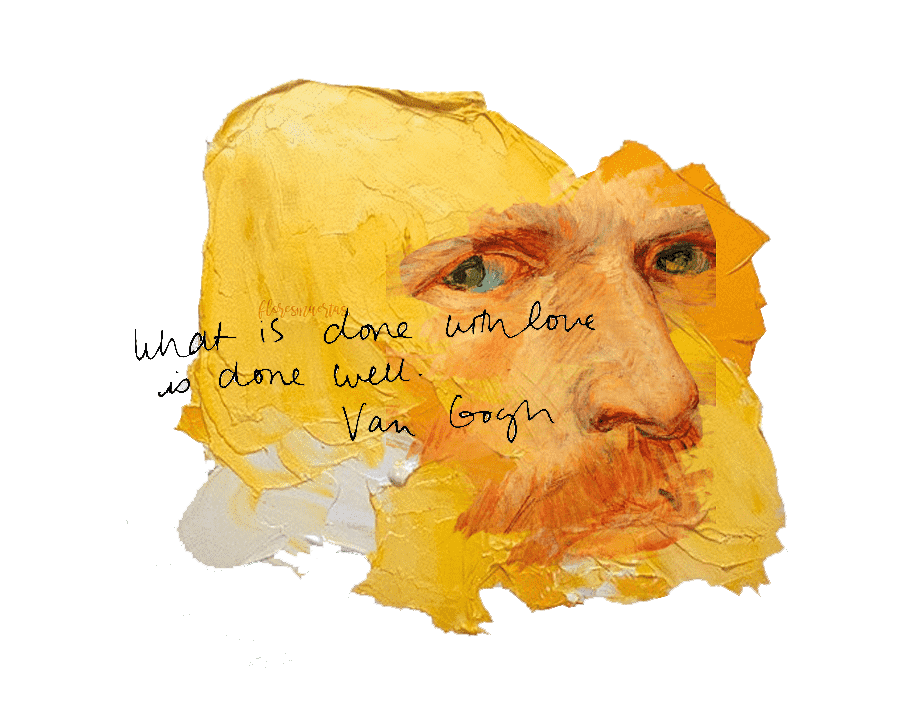 floresmuertas
What is done with love
is done well.
Van Gogh